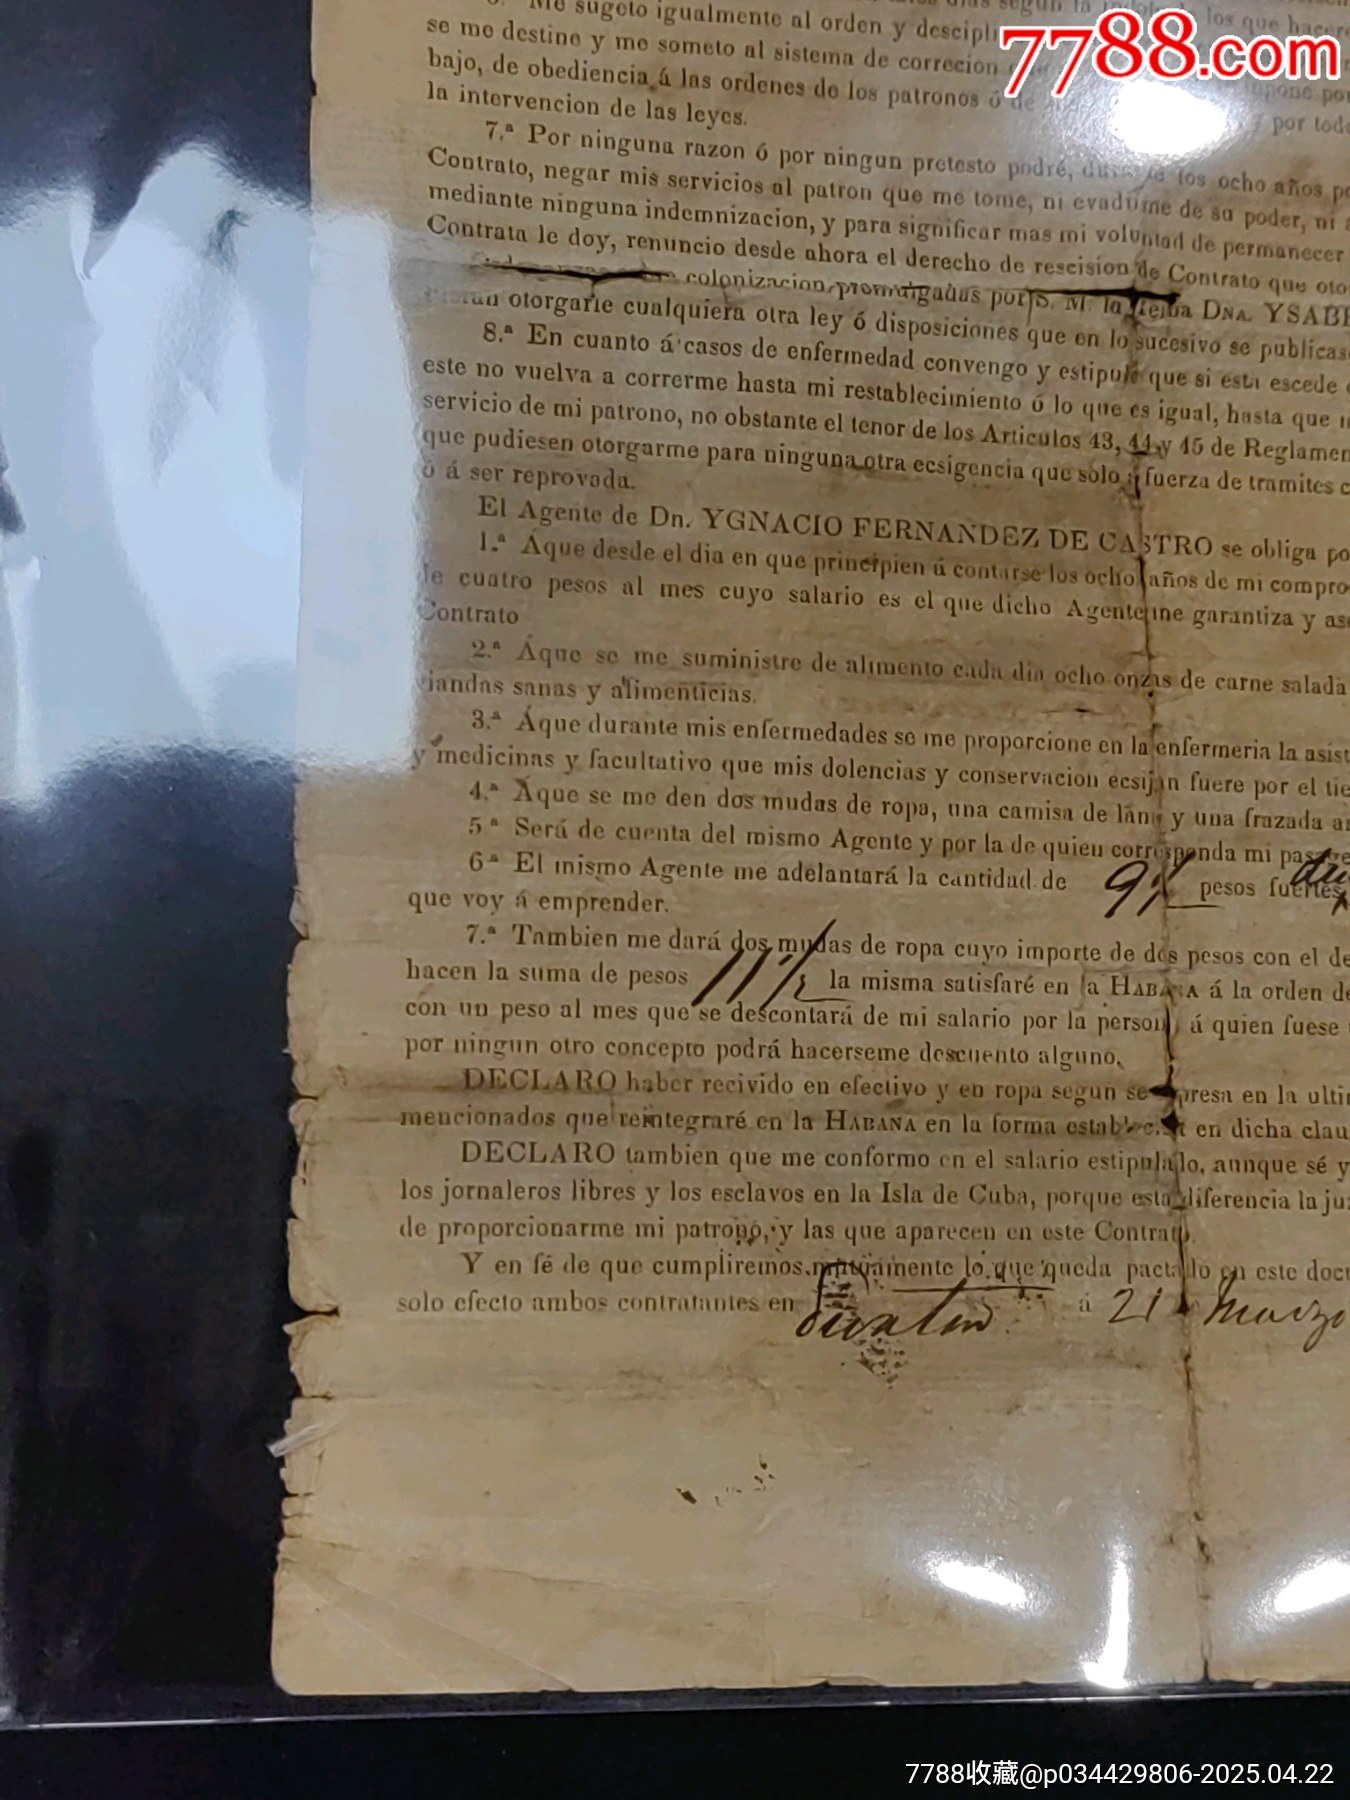 7788.com
Me sugeto igualmente al orden y
se me destine y me someto al sistema de correcion
bajo, de obediencia á las ordenes de los patronos ó de
la intervencion de las leyes. por
7.ª Por ninguna razon ó por ningun pretesto podré, los ocho años
Contrato, negar mis servicios al patron que me tome, ni evadirme de su poder, ni
mediante ninguna indemnizacion, y para significar mas mi voluntad de permanecer
Contrata le doy, renuncio desde ahora el derecho de rescision de Contrato que
colonizacion promulgadas por S. M. la reina DNA.
otorgarle cualquiera otra ley ó disposiciones que en lo sucesivo se
8.ª En cuanto á casos de enfermedad convengo y estipulo que si esta escede
este no vuelva a correrme hasta mi restablecimiento ó lo que es igual, hasta que
servicio de mi patrono, no obstante el tenor de los Articulos 43, 44 y 45 de
que pudiesen otorgarme para ninguna otra ecsigencia que solo á fuerza de tramites
ó á ser reprovada.
El Agente de Dn. YGNACIO FERNANDEZ DE CASTRO se obliga
1.ª Áque desde el dia en que principien á contarse los ocho años de mi
de cuatro pesos al mes cuyo salario es el que dicho Agente me garantiza y
Contrato
2.ª Áque se me suministre de alimento cada dia ocho onzas de carne salada
viandas sanas y alimenticias.
3.ª Áque durante mis enfermedades se me proporcione en la enfermeria la
y medicinas y facultativo que mis dolencias y conservacion ecsijan fuere por el
4.ª Áque se me den dos mudas de ropa, una camisa de lana y una frazada
5ª Será de cuenta del mismo Agente y por la de quien corresponda mi
6ª El mismo Agente me adelantará la cantidad de pesos fuertes
que voy á emprender.
7.ª Tambien me dará dos mudas de ropa cuyo importe de dos pesos con el
hacen la suma de pesos 11 1/2 la misma satisfaré en la HABANA á la orden
con un peso al mes que se descontará de mi salario por la persona á quien fuese
por ningun otro concepto podrá hacerseme descuento alguno.
DECLARO haber recivido en efectivo y en ropa segun se en la
mencionados que reintegraré en la HABANA en la forma establecida en dicha
DECLARO tambien que me conformo en el salario estipulado, aunque sé y
los jornaleros libres y los esclavos en la Isla de Cuba, porque esta diferencia la
de proporcionarme mi patrono, y las que aparecen en este Contrato.
Y en fé de que cumpliremos mutuamente lo que queda pactado en este
solo efecto ambos contratantes en á 21 Marzo
7788收藏@p034429806-2025.04.22